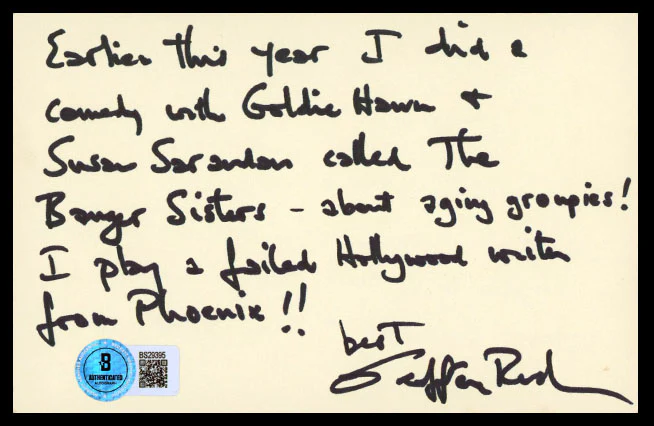 Earlier this year I did a
comedy with Goldie Hawn +
Susan Sarandon called The
Banger Sisters - about aging groupies!
I play a failed Hollywood writer
from Phoenix!!
best
Geoffrey Rush
B
AUTHENTICATED
BS29395